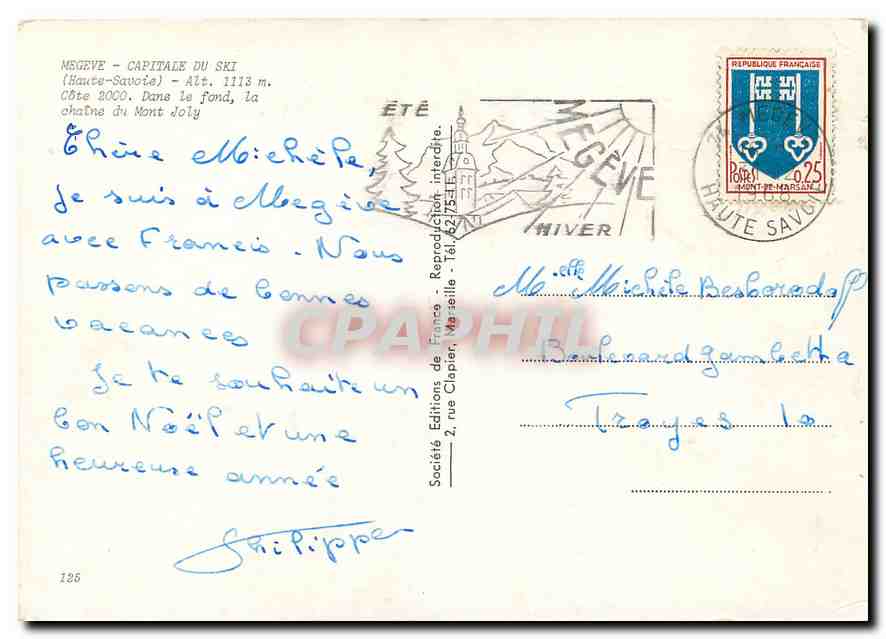 MEGEVE - CAPITALE DU SKI
(Haute-Savoie) - Alt. 1113 m.
Côte 2000. Dans le fond, la
chaîne du Mont Joly
Chère Michèle,
Je suis à Megève
avec Francis. Nous
passons de bonnes
vacances
Je te souhaite un
bon Noël et une
heureuse année
Philippe
125
Société Editions de France - Reproduction interdite.
2, rue Clapier, Marseille - Tél. 62-75-15
ÉTÉ
MEGÈVE
HIVER
REPUBLIQUE FRANÇAISE
POSTES 0,25
MONT-DE-MARSAN
HAUTE SAVOIE
Melle Michèle
Boulevard Gambetta
Troyes 10
CPAPHIL